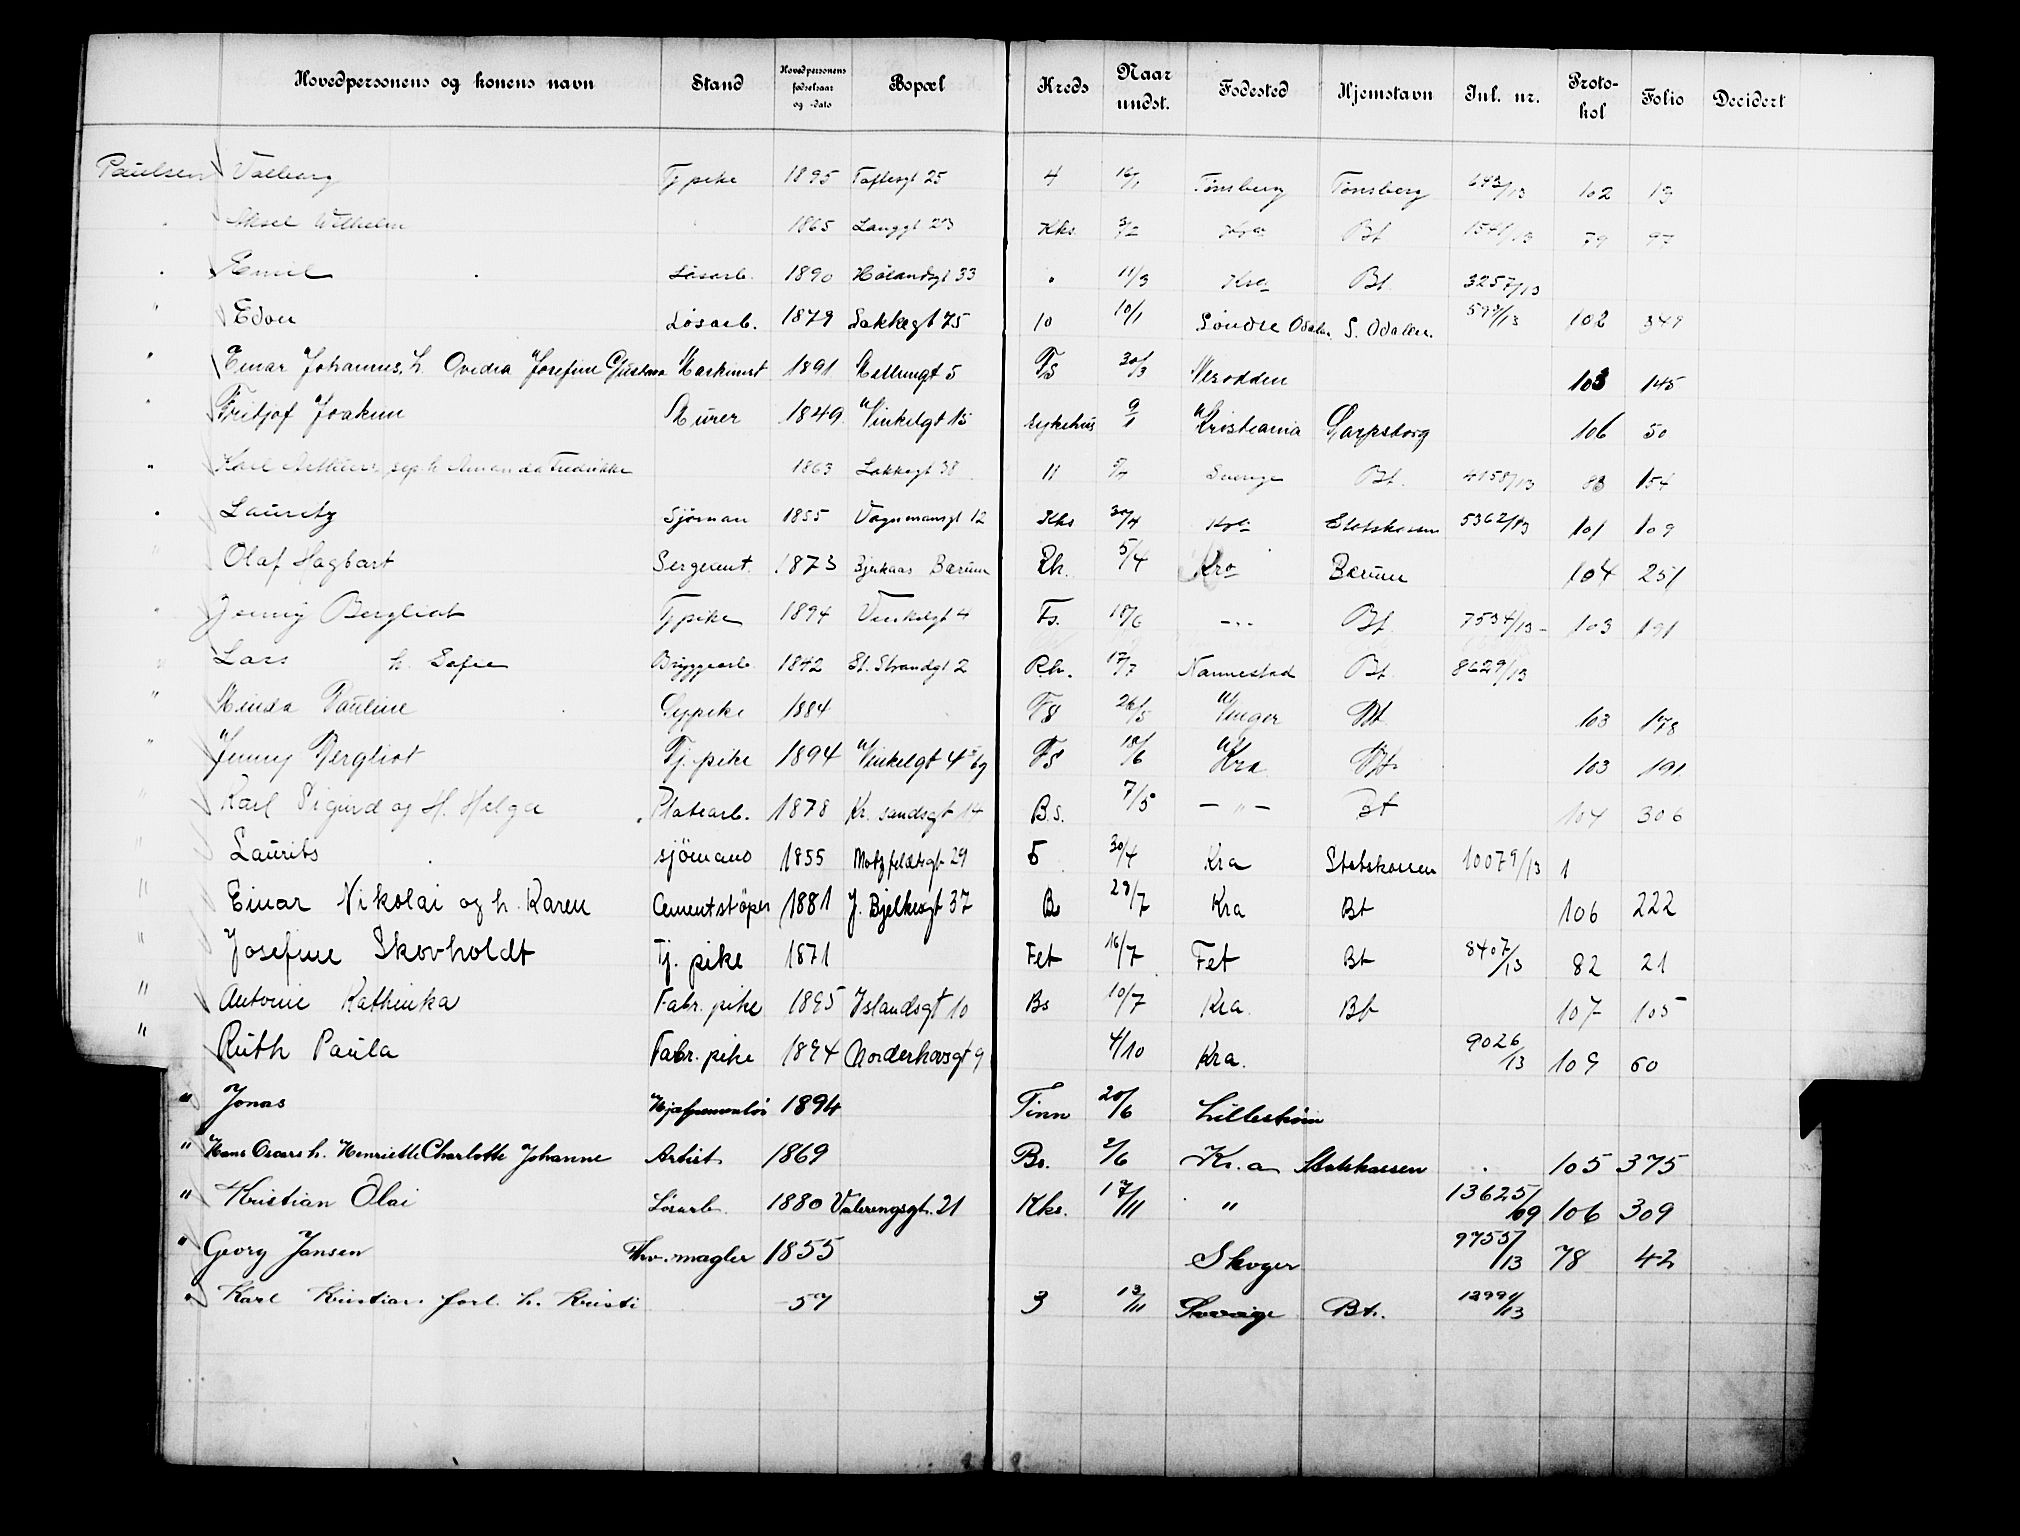 Hovedpersonens og konens navn Stand Hovedpersonens fødselsaar og -dato Bopæl Kreds Naar undst. Fødested Hjemstavn Inl. nr. Proto-kol Folio Decidert
Paulsen Valborg Tj pike 1895 Toftesgt 25 4 16/1 Tønsberg Tønsberg 643/13 102 13
" Aksel Wilhelm 1865 Langgt 23 Kks 3/2 Kra Bt 1541/13 79 97
" Emil Løsarb. 1890 Hølandsgt 33 " 11/3 Kra Bt. 3257/13
" Edon Løsarb. 1879 Lakkegt 75 10 10/1 Søndre Odalen S. Odalen. 592/13 102 349
" Einar Johannes, h. Ovedia Josefine Gustava Maskinist 1891 Mellumgt 5 Fs 30/3 Nesodden 103 145
" Fritjof Joakim Murer 1849 Vinkelgt 15 Sykehus 9/1 Kristiania Sarpsborg 106 50
" Karl Arthur, sep. h Amanda Fredrikke 1863 Lakkegt 38 11 5/4 Sverige Bt. 4158/13 83 154
" Lauritz Sjømann 1855 Vognmansgt 12 Kks 30/4 Kra Statskassen 5362/13 101 109
" Olaf Hagbart Sergeant. 1873 Bjerkaas Bærum Rh. 5/4 Kra Bærum 104 251
" Jenny Bergliot Tj pike 1894 Vinkelgt 4 Fs. 18/6 -"- Bt. 7534/13 - 103 191
" Lars h. Sofie Bryggearb. 1842 St. Strandgt 2 Rh. 17/7 Nannestad Bt. 8629/13
" Minda Pauline Sypike 1884 Fs 26/5 Vinger Bt 103 178
" Jenny Bergliot Tj. pike 1894 Vinkelgt 4 Fs 18/6 Kra Bt 103 191
" Karl Sigurd og H. Helga Platearb. 1878 Kr. sandsgt 14 B.s. 7/5 — " — Bt 104 306
" Laurits sjömand 1855 Motzfeldtsgt 29 5 30/4 Kra Statskassen 10079/13 1
" Einar Nikolai og h. Karen Cementstöper 1881 J. Bjelkesgt 37 Bs 29/7 Kra Bt 106 222
" Josefine Skovholdt Tj. pike 1871 Fet 16/7 Fet Bt 8407/13 82 21
" Antonie Kathinka Fabr. pike 1895 Islandsgt 10 Bs 10/7 Kra. Bt 107 105
" Ruth Paula Fabr. pike 1894 Norderhovsgt 9 4/10 Kra. 9026/13 109 60
" Jonas 1894 Tinn 20/6 Lillestrøm
" Hans Oscar h. Henriette Charlotte Johanne Artist 1869 Bs. 2/6 Kr.a Statskassen 105 375
" Kristian Olai Løsarb. 1880 Valerengsgt. 21 Kks. 17/11 " 13625/09 106 309
" Georg Jansen Thv. mægler 1855 Skoger 9755/13 78 42
" Karl Kristian forl. h. Kristi -57 3 13/11 Sverige Bt. 12994/13